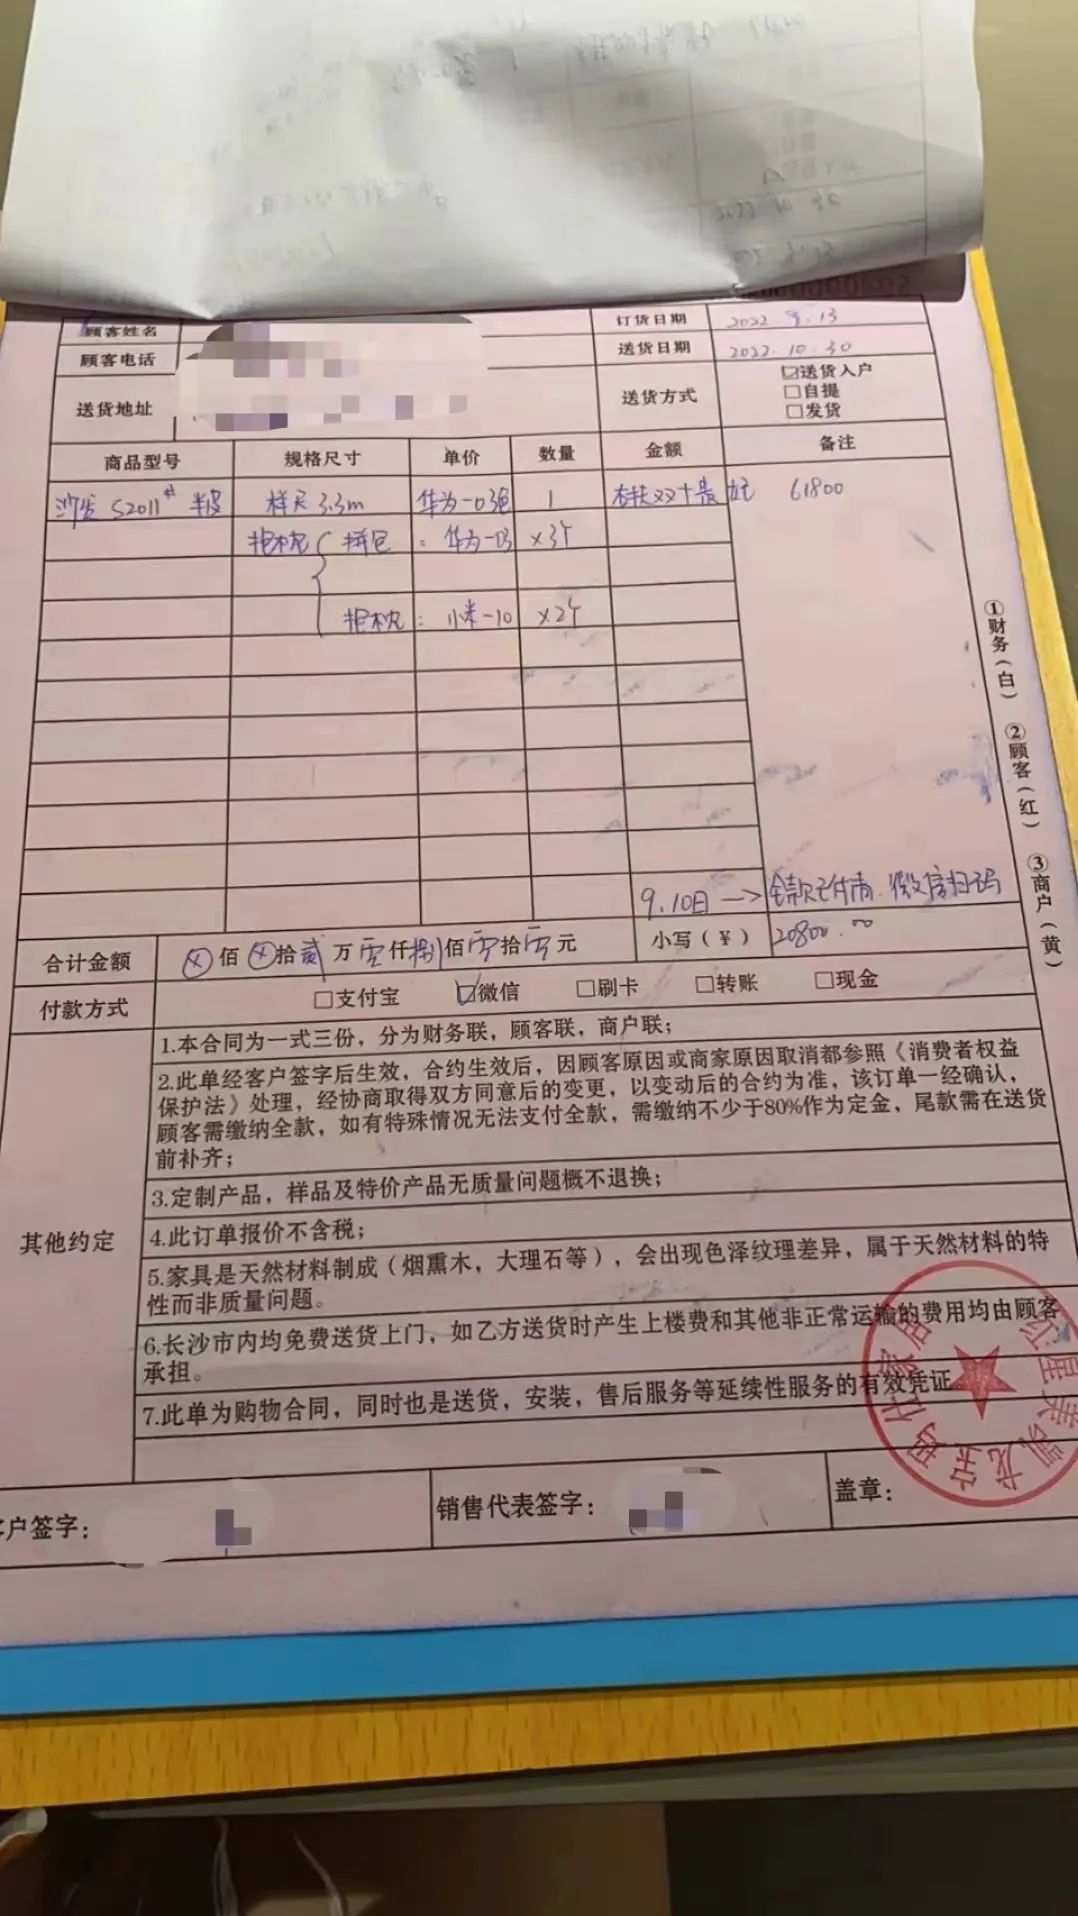 顾客姓名 订货日期 2022.9.13
顾客电话 送货日期 2022.10.30
送货地址 送货方式 ☑送货入户
□自提
□发货
商品型号 规格尺寸 单价 数量 金额 备注
沙发 S2011# 半皮 样尺3.3m 华为-03色 1 61800
抱枕 拼包: 华为-03 ×3个
抱枕: 小米-10 ×2个
9.10日 → 全款已付清.微信扫码
合计金额 ⊗佰⊗拾贰万零仟捌佰零拾零元 小写(¥) 20800.00
付款方式 □支付宝 ☑微信 □刷卡 □转账 □现金
其他约定
1.本合同为一式三份，分为财务联，顾客联，商户联；
2.此单经客户签字后生效，合约生效后，因顾客原因或商家原因取消都参照《消费者权益
保护法》处理，经协商取得双方同意后的变更，以变动后的合约为准，该订单一经确认，
顾客需缴纳全款，如有特殊情况无法支付全款，需缴纳不少于80%作为定金，尾款需在送货
前补齐；
3.定制产品，样品及特价产品无质量问题概不退换；
4.此订单报价不含税；
5.家具是天然材料制成（烟熏木，大理石等），会出现色泽纹理差异，属于天然材料的特
性而非质量问题。
6.长沙市内均免费送货上门，如乙方送货时产生上楼费和其他非正常运输的费用均由顾客
承担。
7.此单为购物合同，同时也是送货，安装，售后服务等延续性服务的有效凭证
户签字： 销售代表签字： 盖章：
①财务(白) ②顾客(红) ③商户(黄)